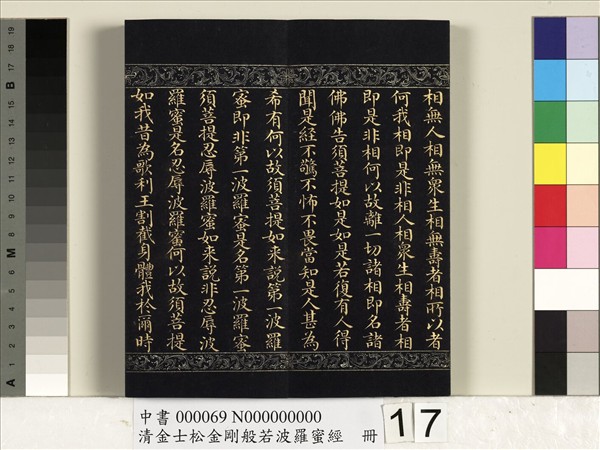 相無人相無眾生相無壽者相所以者
何我相即是非相人相眾生相壽者相
即是非相何以故離一切諸相即名諸
佛佛告須菩提如是如是若復有人得
聞是經不驚不怖不畏當知是人甚為
希有何以故須菩提如来說第一波羅
蜜即非第一波羅蜜是名第一波羅蜜
須菩提忍辱波羅蜜如来說非忍辱波
羅蜜是名忍辱波羅蜜何以故須菩提
如我昔為歌利王割截身體我於爾時
中書 000069 N000000000
清金士松金剛般若波羅蜜經 冊 17
A 1 2 3 4 5 6 M 8 9 10 11 12 13 14 15 B 17 18 19